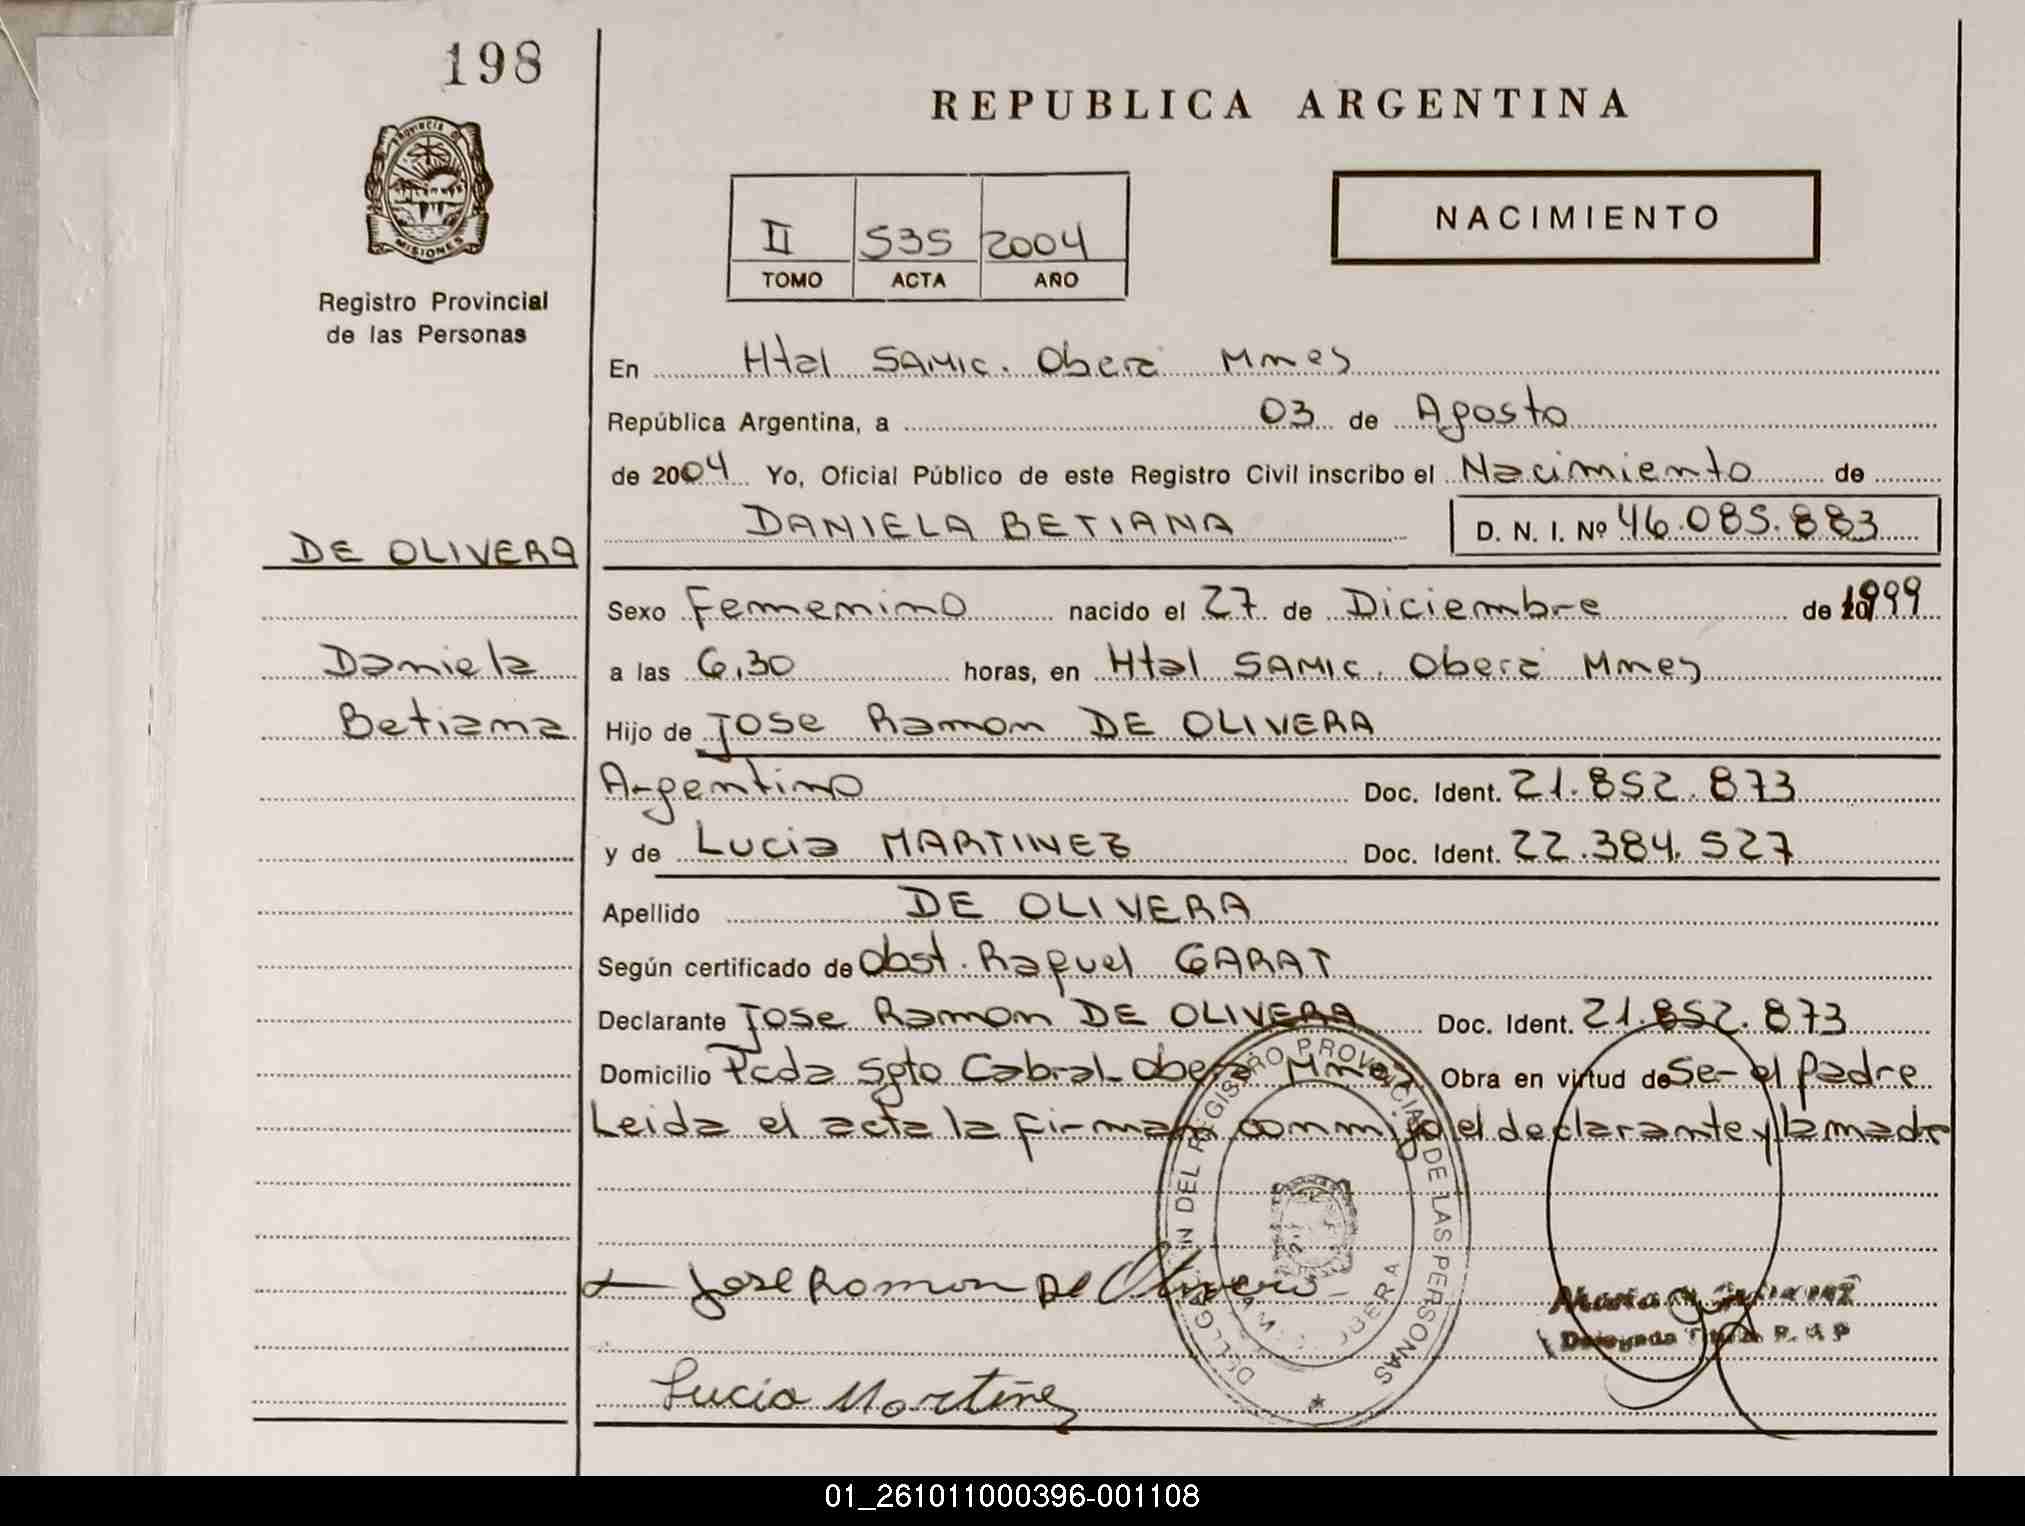 198
REPUBLICA ARGENTINA
PROVINCIA D
MISIONES
Registro Provincial
de las Personas
II 535 2004
TOMO ACTA AÑO
NACIMIENTO
En Htal SAMIC. Oberá Mnes
República Argentina, a 03 de Agosto
de 2004 Yo, Oficial Público de este Registro Civil inscribo el Nacimiento de
DANIELA BETIANA D. N. I. Nº 46.085.883
DE OLIVERA
Sexo Femenino nacido el 27 de Diciembre de 1999
Daniela
a las 6,30 horas, en Htal SAMIC. Oberá Mnes
Betiana
Hijo de Jose Ramon DE OLIVERA
Argentino Doc. Ident. 21.852.873
y de Lucia MARTINEZ Doc. Ident. 22.384.527
Apellido DE OLIVERA
Según certificado de Obst. Raquel GARAT
Declarante Jose Ramon DE OLIVERA Doc. Ident. 21.852.873
Domicilio Pcda Sgto Cabral - Oberá Mnes Obra en virtud de Ser el padre
Leida el acta la firman conmigo el declarante y la madre
DELEGACION DEL REGISTRO PROVINCIAL DE LAS PERSONAS
OBERA
Jose Ramon De Olivera
Maria
Delegada Titular R. P.
Lucia Martinez
01_261011000396-001108